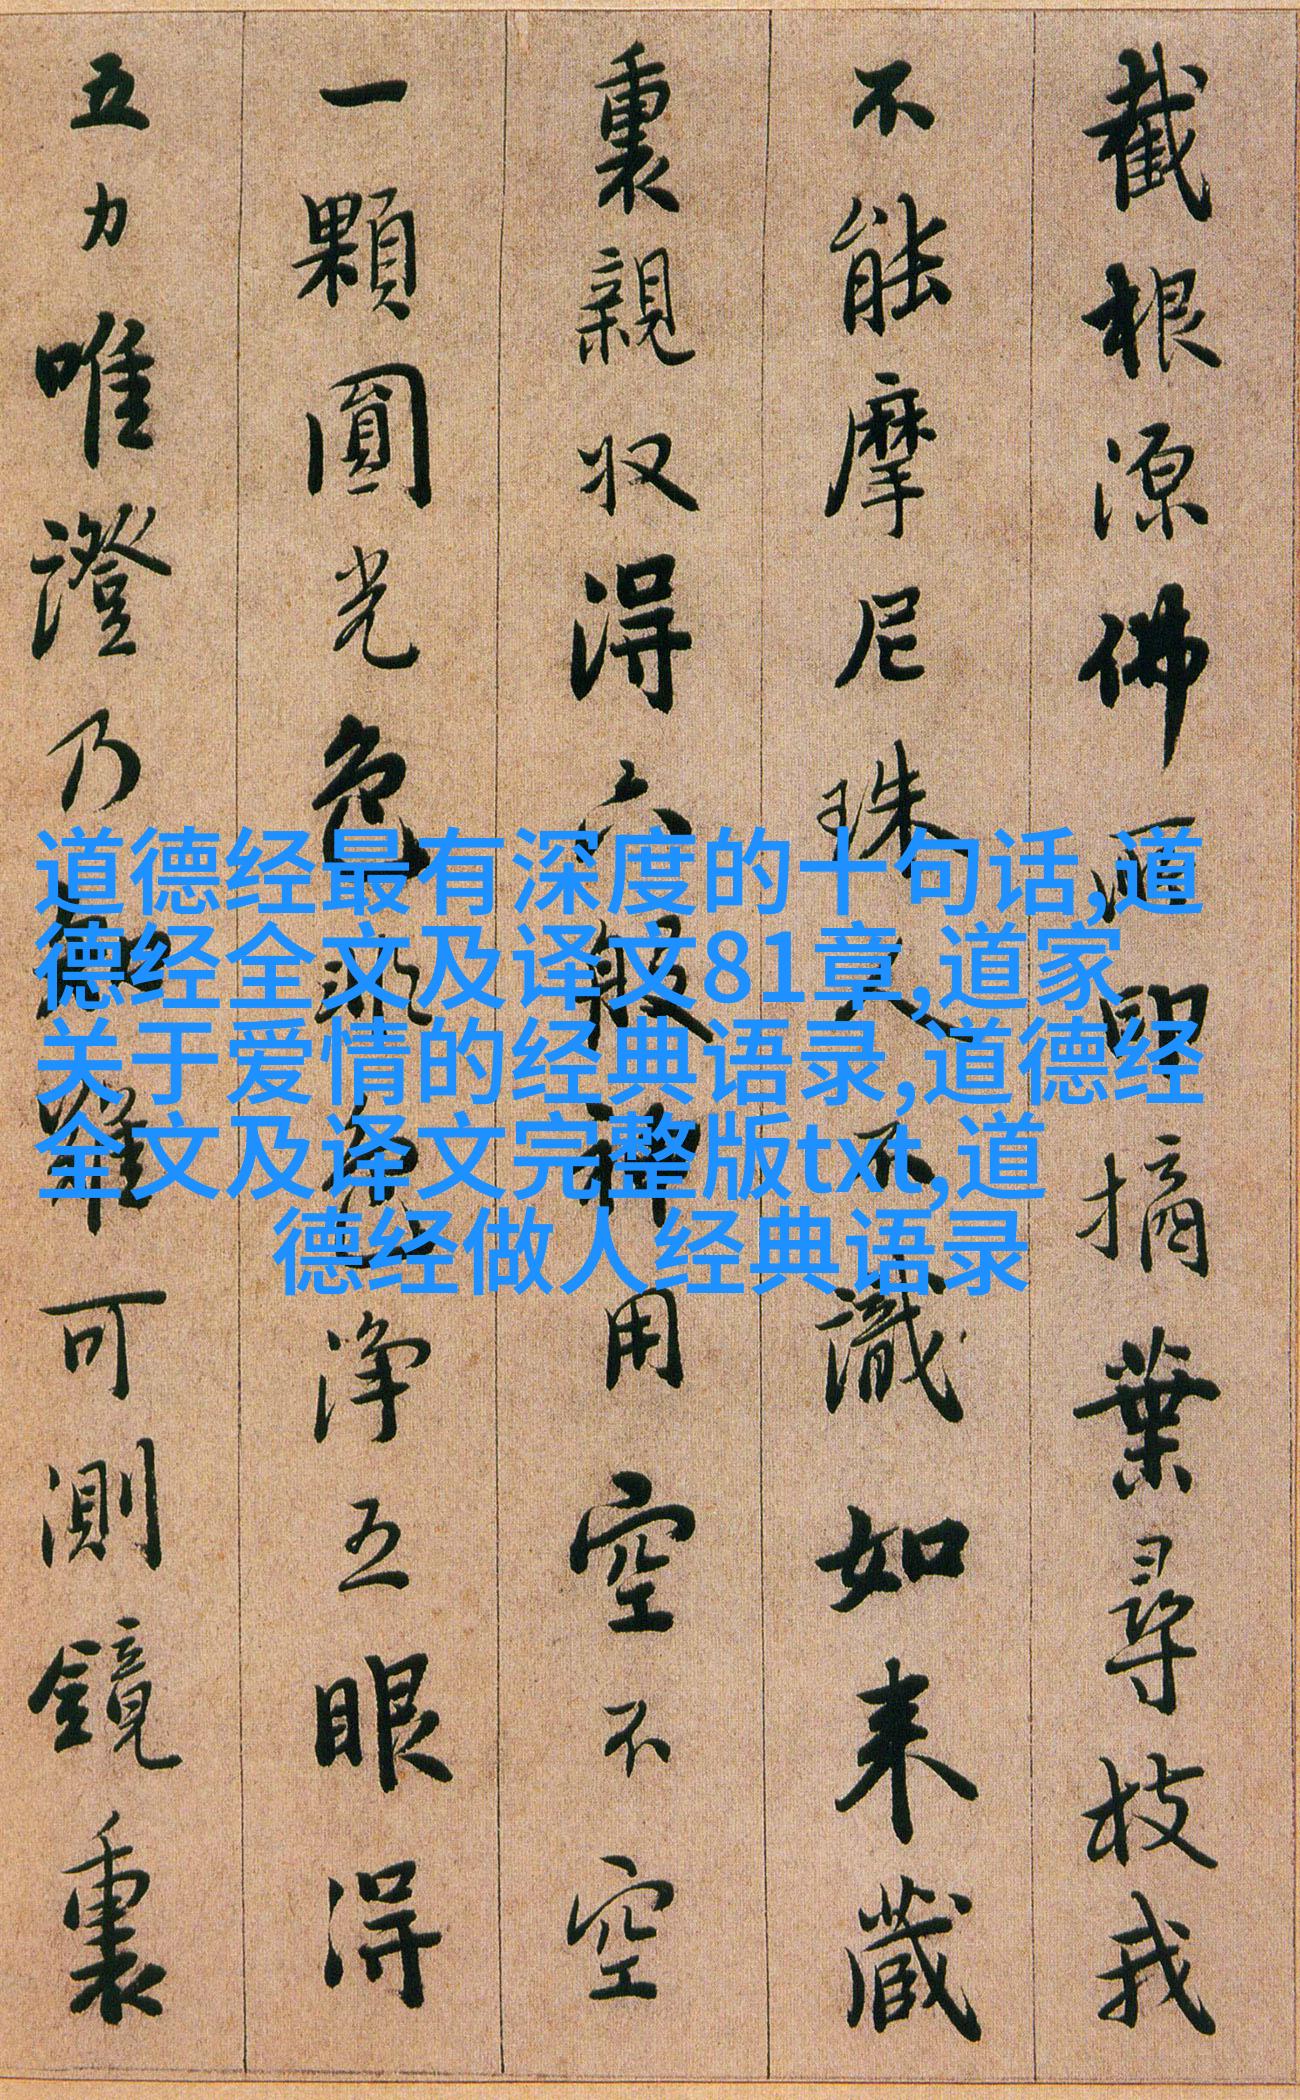 截根源佛所印摘葉尋枝我
不能摩尼珠人不識如来藏
裏親收得六般神用空不空
一顆圓光色非色淨五眼得
五力唯證乃知難可測鏡裏
道德经最有深度的十句话,道
德经全文及译文81章,道家
关于爱情的经典语录,道德经
全文及译文完整版txt,道
德经做人经典语录